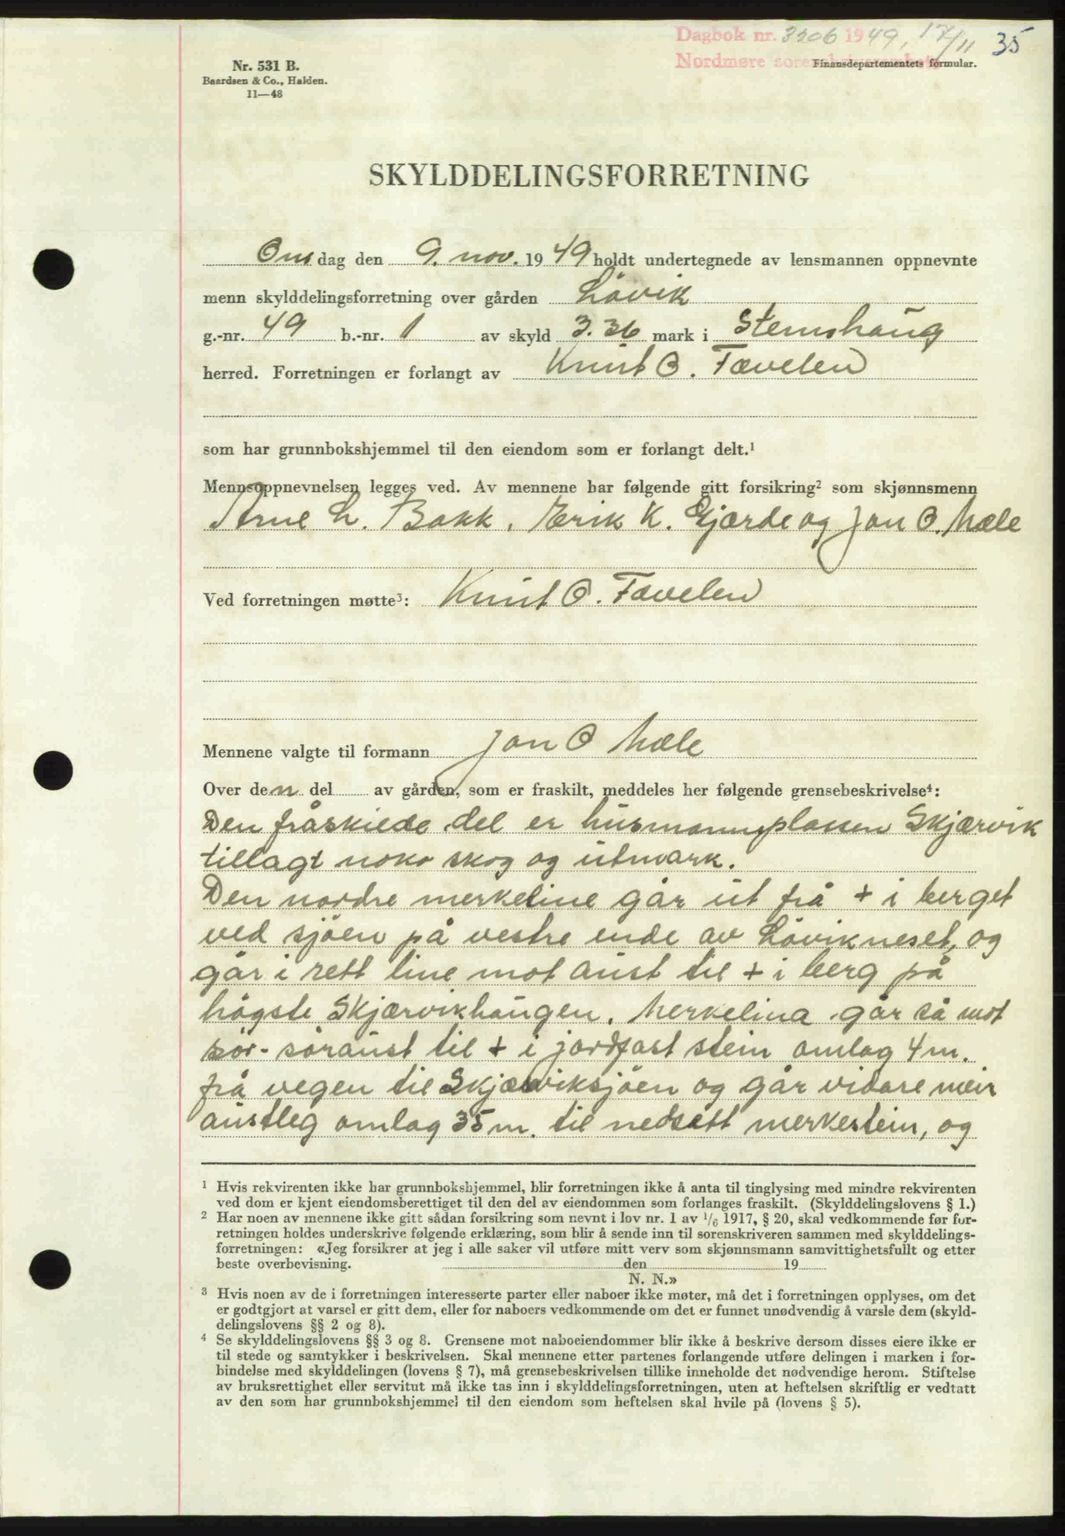 Dagbok nr. 3206 1949, 17/11 35
Nordmøre sorenskriverembete
Finansdepartementets formular.
Nr. 531 B.
Baardsen & Co., Halden.
11—48
SKYLDDELINGSFORRETNING
Onsdag den 9. nov. 1949 holdt undertegnede av lensmannen oppnevnte
menn skylddelingsforretning over gården Lövik
g.-nr. 49 b.-nr. 1 av skyld 3.36 mark i Stemshaug
herred. Forretningen er forlangt av Knut O. Tævelen
som har grunnbokshjemmel til den eiendom som er forlangt delt.¹
Mennsoppnevnelsen legges ved. Av mennene har følgende gitt forsikring² som skjønnsmenn
Arne L. Bakk, Erik K. Gjærde og Jon O. Mæle
Ved forretningen møtte³: Knut O. Tævelen
Mennene valgte til formann Jon O Mæle
Over den del av gården, som er fraskilt, meddeles her følgende grensebeskrivelse⁴:
Den fråskilde del er husmannsplassen Skjærvik
tillagt noko skog og utmark.
Den nordre merkeline går ut frå + i berget
ved sjöen på vestre ende av Lövikneset, og
går i rett line mot aust til + i berg på
högste Skjærvikhaugen. Merkelina går så mot
sör-söraust til + i jordfast stein omlag 4 m.
frå vegen til Skjærviksjöen og går vidare meir
austleg omlag 35 m. til nedsett merkestein, og
¹ Hvis rekvirenten ikke har grunnbokshjemmel, blir forretningen ikke å anta til tinglysing med mindre rekvirenten
ved dom er kjent eiendomsberettiget til den del av eiendommen som forlanges fraskilt. (Skylddelingslovens § 1.)
² Har noen av mennene ikke gitt sådan forsikring som nevnt i lov nr. 1 av 1/6 1917, § 20, skal vedkommende før for-
retningen holdes underskrive følgende erklæring, som blir å sende inn til sorenskriveren sammen med skylddelings-
forretningen: «Jeg forsikrer at jeg i alle saker vil utføre mitt verv som skjønnsmann samvittighetsfullt og etter
beste overbevisning. den 19
N. N.»
³ Hvis noen av de i forretningen interesserte parter eller naboer ikke møter, må det i forretningen opplyses, om det
er godtgjort at varsel er gitt dem, eller for naboers vedkommende om det er funnet unødvendig å varsle dem (skyld-
delingslovens §§ 2 og 8).
⁴ Se skylddelingslovens §§ 3 og 8. Grensene mot naboeiendommer blir ikke å beskrive dersom disses eiere ikke er
til stede og samtykker i beskrivelsen. Skal mennene etter partenes forlangende utføre delingen i marken i for-
bindelse med skylddelingen (lovens § 7), må grensebeskrivelsen tillike inneholde det nødvendige herom. Stiftelse
av bruksrettighet eller servitut må ikke tas inn i skylddelingsforretningen, uten at heftelsen skriftlig er vedtatt
av den som har grunnbokshjemmel til den eiendom som heftelsen skal hvile på (lovens § 5).